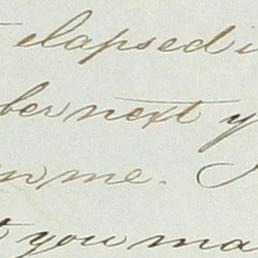 elapsed i
ber next y
n me. I
t you ma